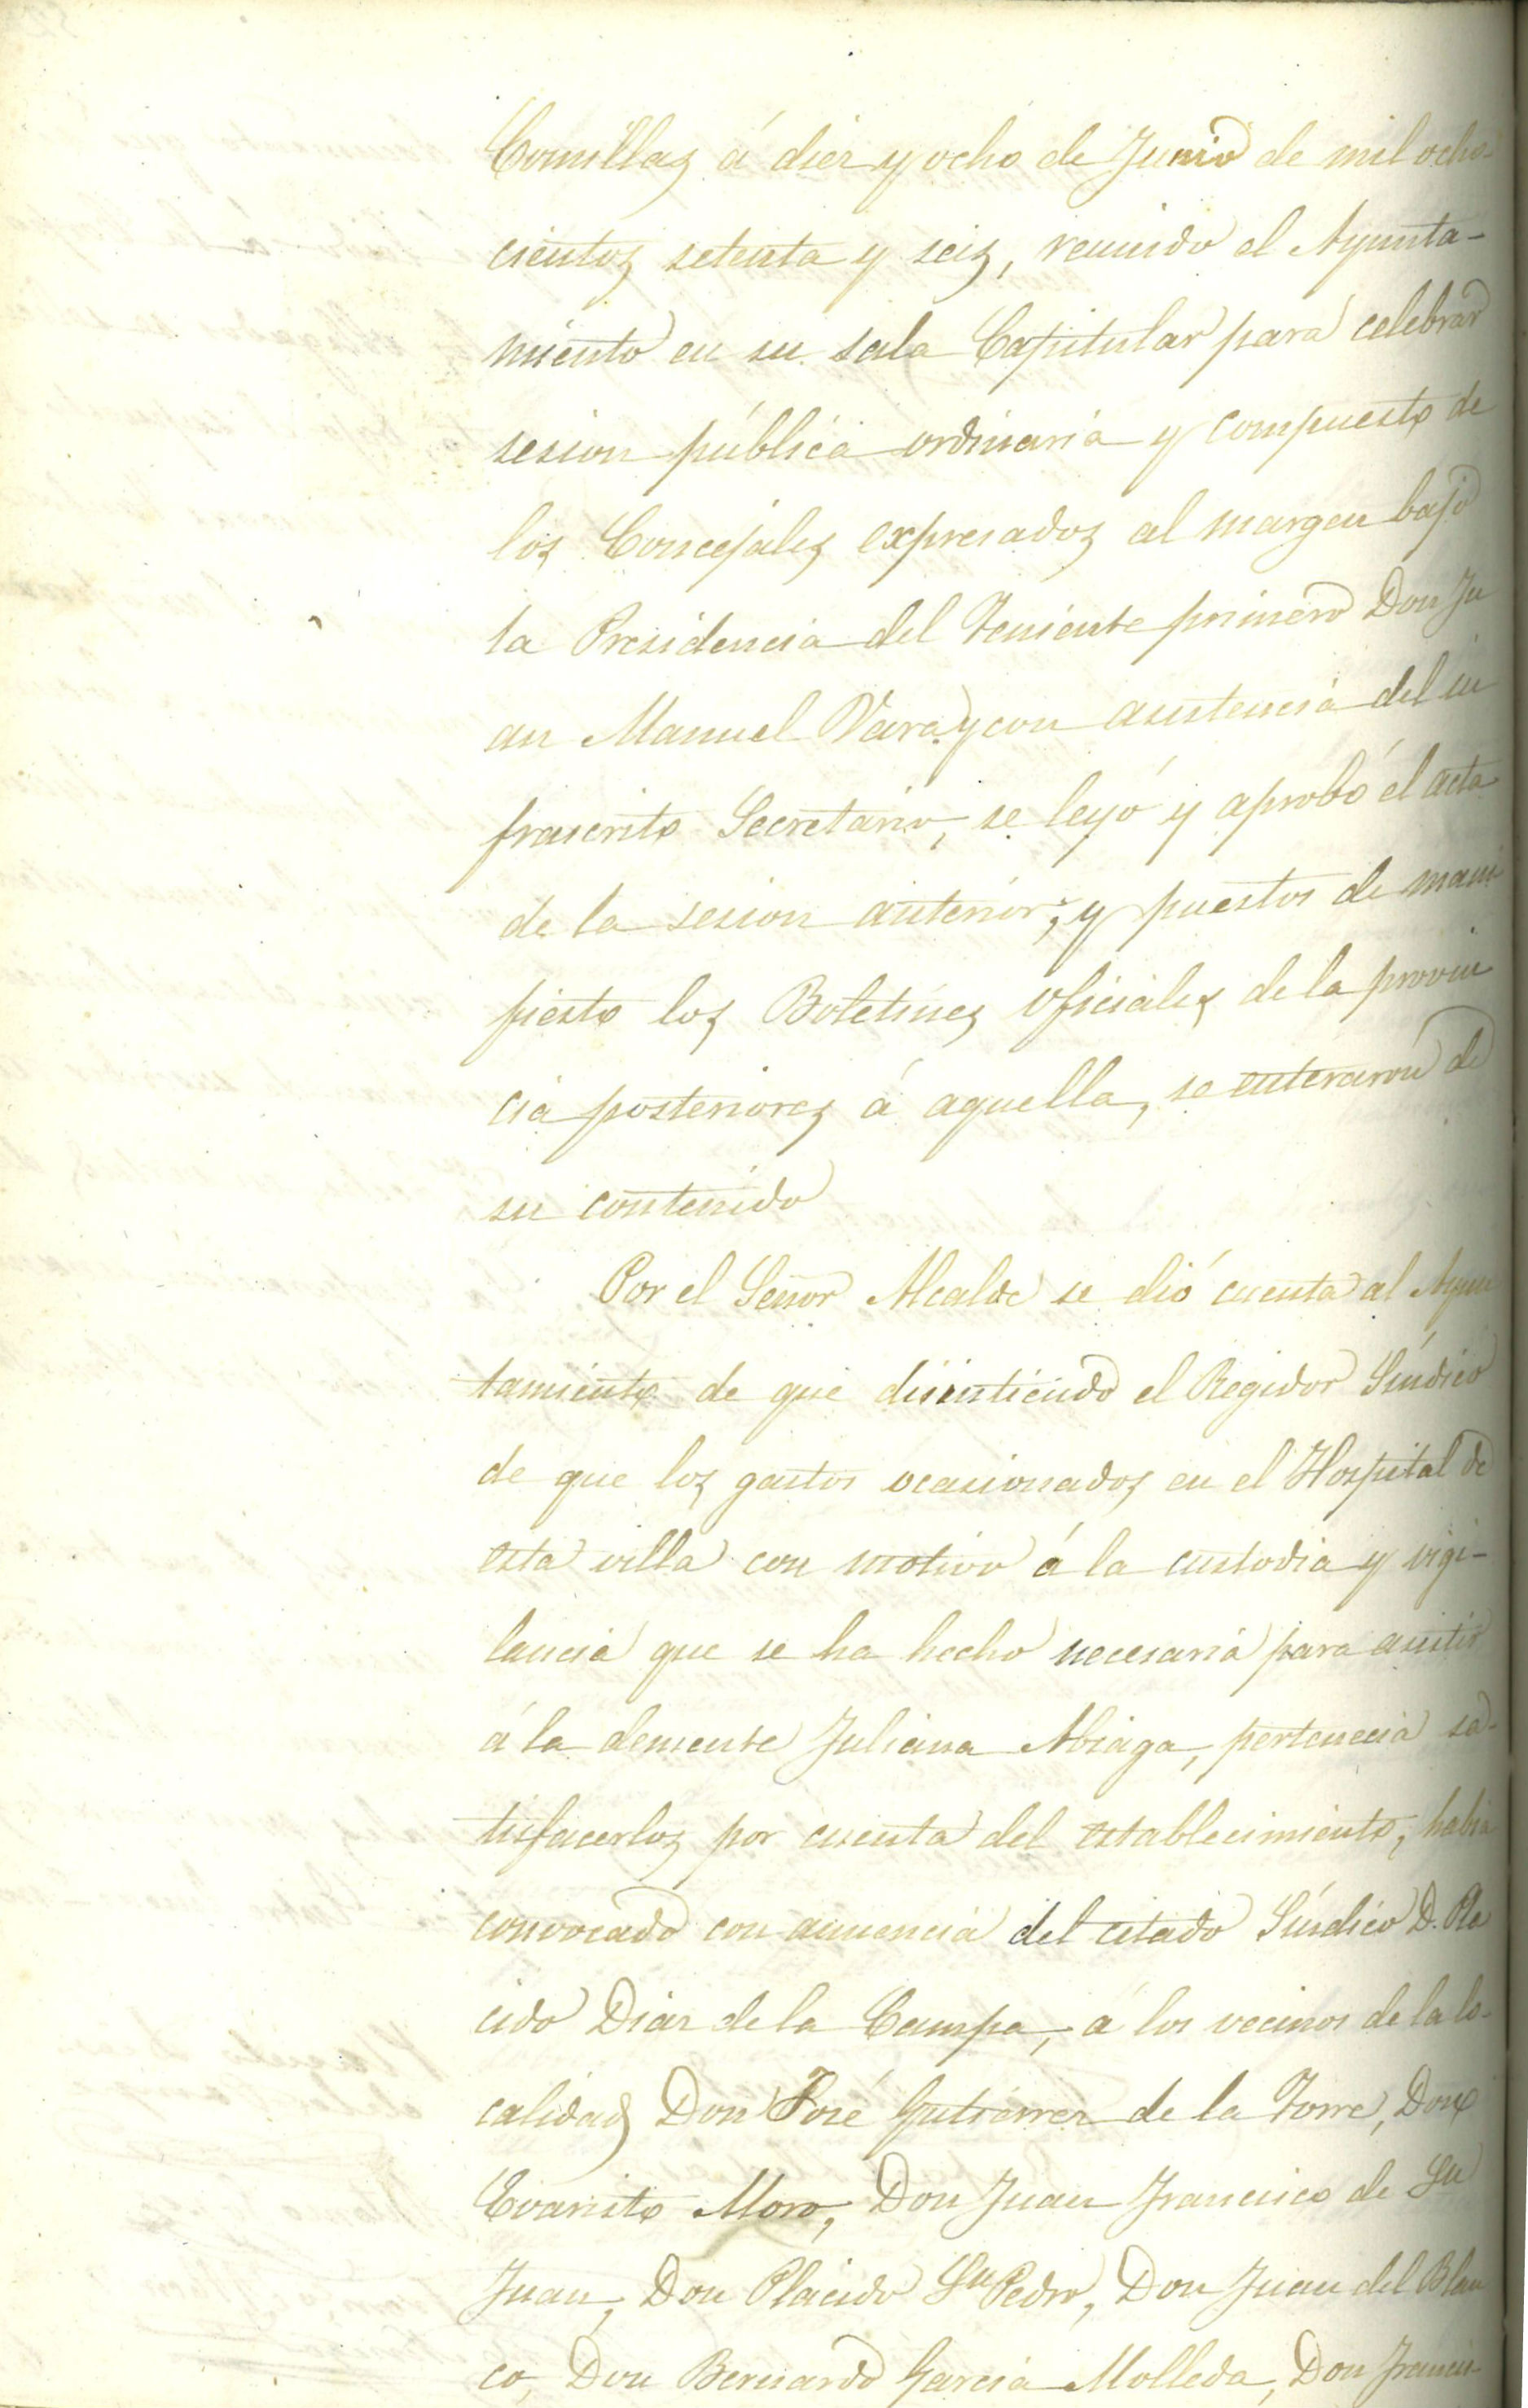 Comillas á diez y ocho de Junio de mil ocho-
cientos setenta y seis, reunido el Ayunta-
miento en su sala Capitular para celebrar
sesion pública ordinaria y compuesto de
los Concejales expresados al margen bajo
la Presidencia del Teniente primero Don Ju
an Manuel Vara y con asistencia del in
frascrito Secretario, se leyó y aprobó el acta
de la sesion anterior; y puestos de mani
fiesto los Boletines oficiales de la provin
cia posteriores á aquella, se enteraron de
su contenido
Por el Señor Alcalde se dió cuenta al Ayun
tamiento de que disintiendo el Regidor Síndico
de que los gastos ocasionados en el Hospital de
esta villa con motivo á la custodia y vigi-
lancia que se ha hecho necesaria para asistir
á la demente Juliana Abiaga, pertenecia sa-
tisfacerlos por cuenta del establecimiento, habia
convocado con anuencia del citado Síndico D. Pla
cido Diaz de la Campa, á los vecinos de la lo-
calidad Don José Gutierrez de la Torre, Don
Evaristo Moro, Don Juan Francisco de Sn
Juan, Don Placido Sn Pedro, Don Juan del Blan
co, Don Bernardo Garcia Molleda, Don Francis